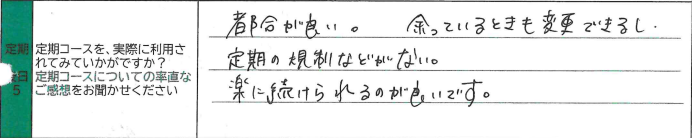 定期
5
定期コースを、実際に利用さ
れてみていかがですか？
定期コースについての率直な
ご感想をお聞かせください
都合が良い。 余っているときも変更できるし.
定期の規制などがない。
楽に続けられるのが良いです。